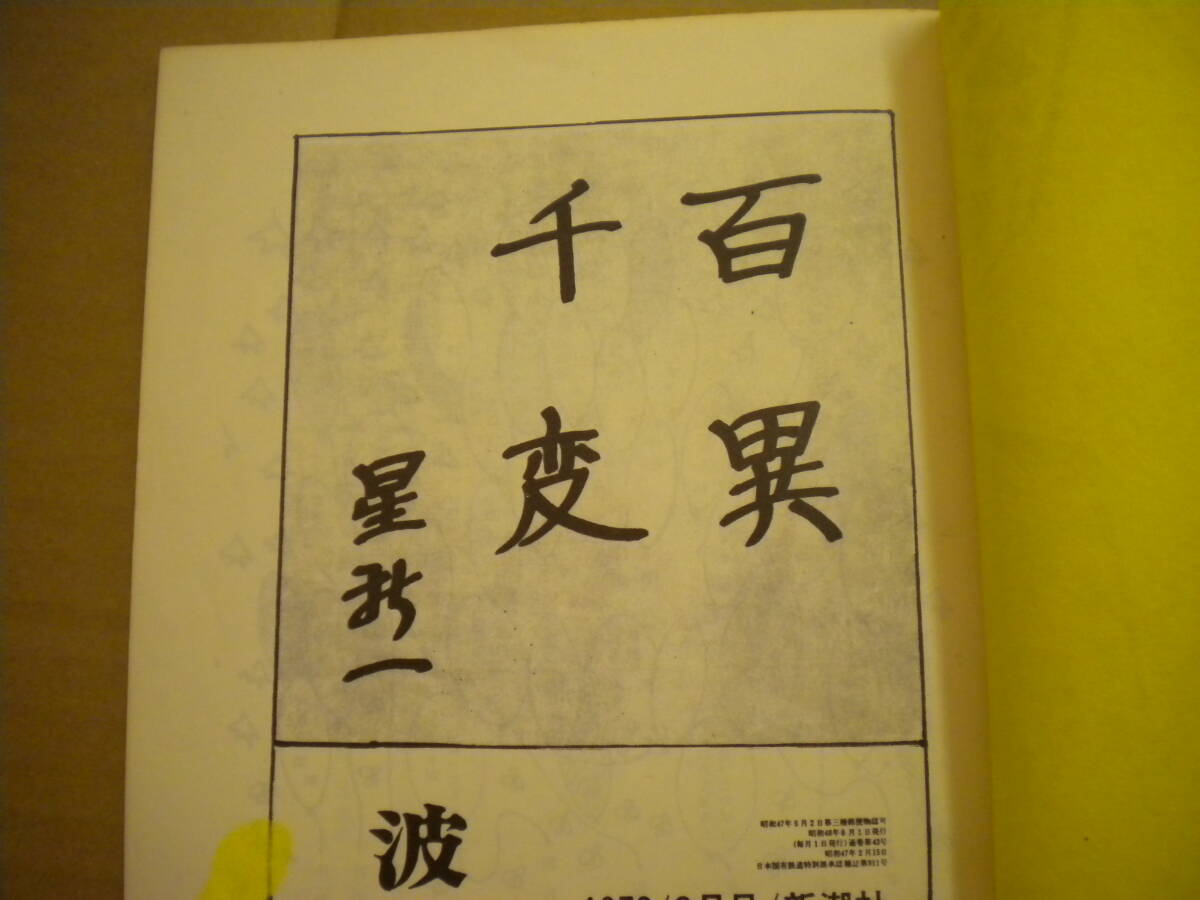 百異
千変
星新一
波
昭和47年5月2日第三種郵便物認可
昭和48年8月1日発行
(毎月1日発行)通巻第43号
昭和47年2月15日
日本国有鉄道特別扱承認雑誌第911号